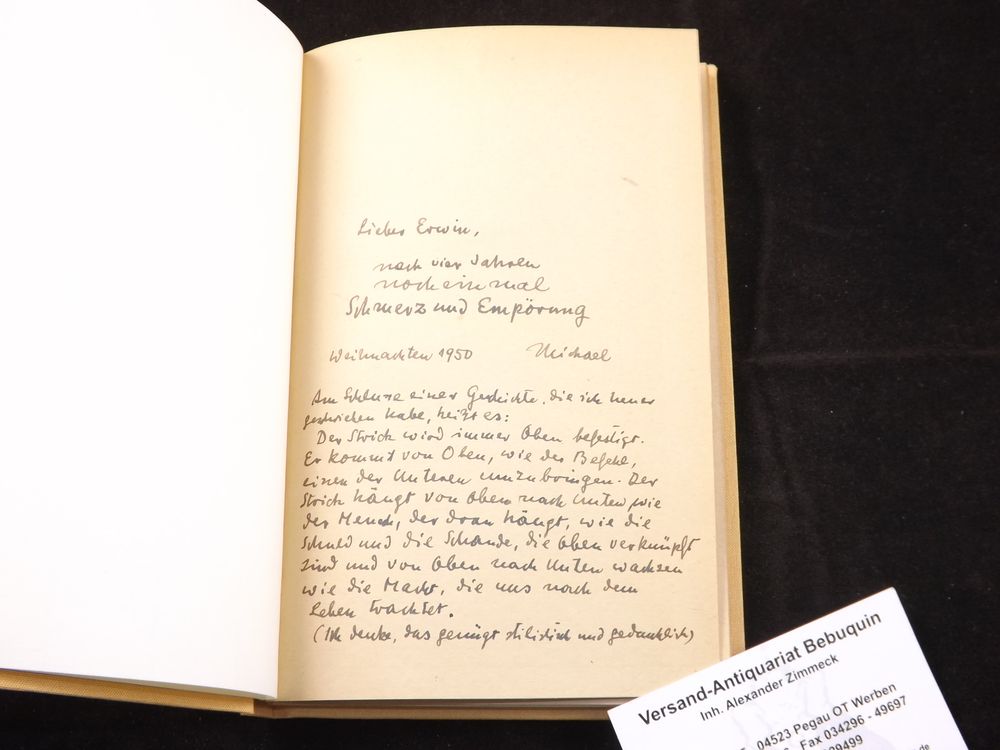 Lieber Erwin,
nach vier Jahren
noch einmal
Schmerz und Empörung
Weihnachten 1950 Michael
Am Schlusse einer Geschichte, die ich heuer
geschrieben habe, heißt es:
Der Strick wird immer Oben befestigt.
Er kommt von Oben, wie der Befehl,
einen der Unteren umzubringen. Der
Strick hängt von Oben nach Unten, wie
der Mensch, der dran hängt, wie die
Schuld und die Schande, die Oben verknüpft
sind und von Oben nach Unten wachsen
wie die Macht, die uns nach dem
Leben trachtet.
(Ich denke, das genügt stilistisch und gedanklich)
Versand-Antiquariat Bebuquin
Inh. Alexander Zimmeck
04523 Pegau OT Werben
Fax 034296 - 49697
29499